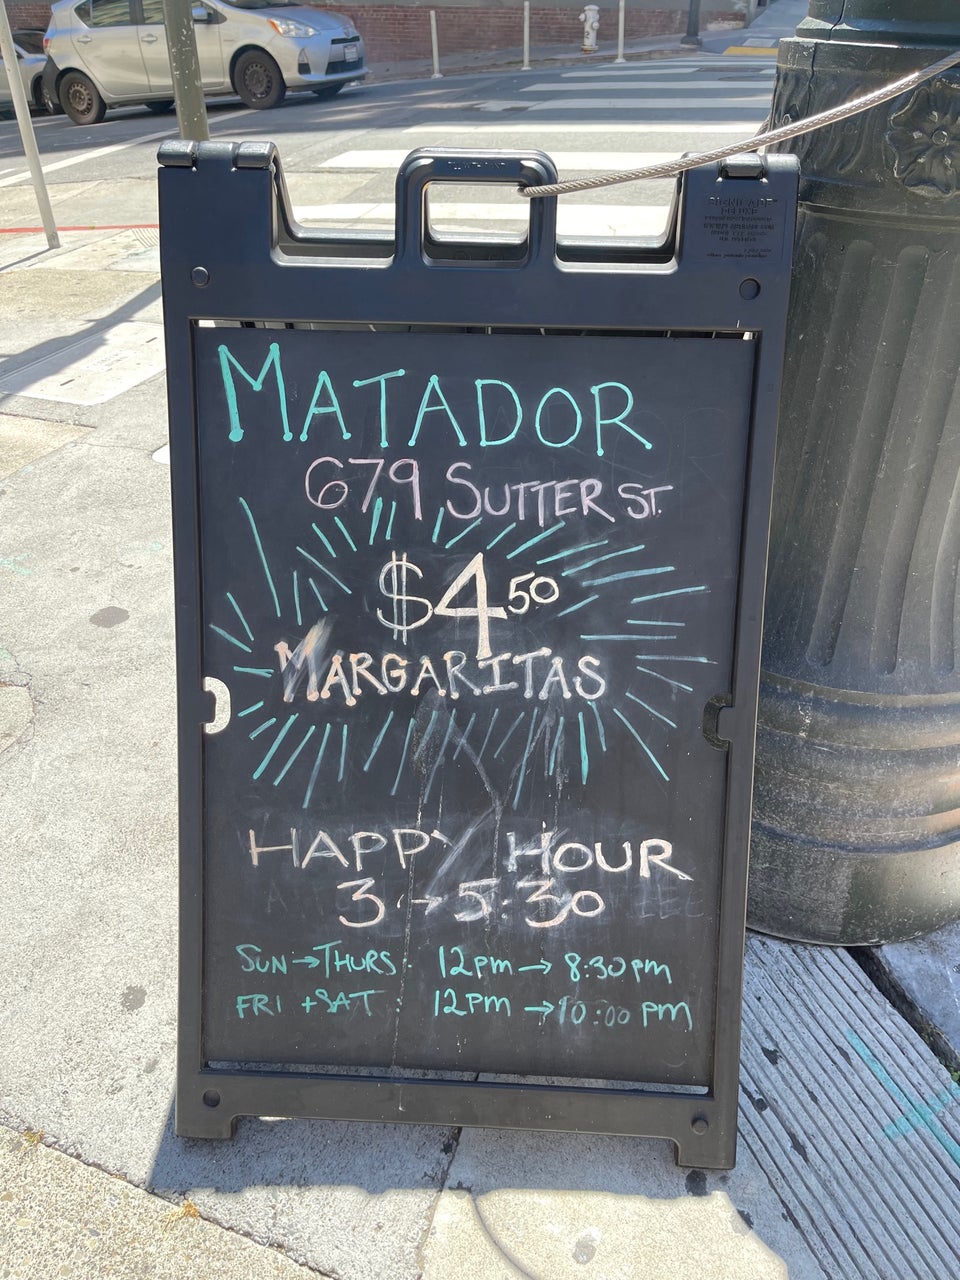 SIGNICADE
DELUXE
MATADOR
679 SUTTER ST.
$4.50
MARGARITAS
HAPPY HOUR
3 → 5:30
SUN → THURS: 12pm → 8:30pm
FRI + SAT: 12pm → 10:00 pm